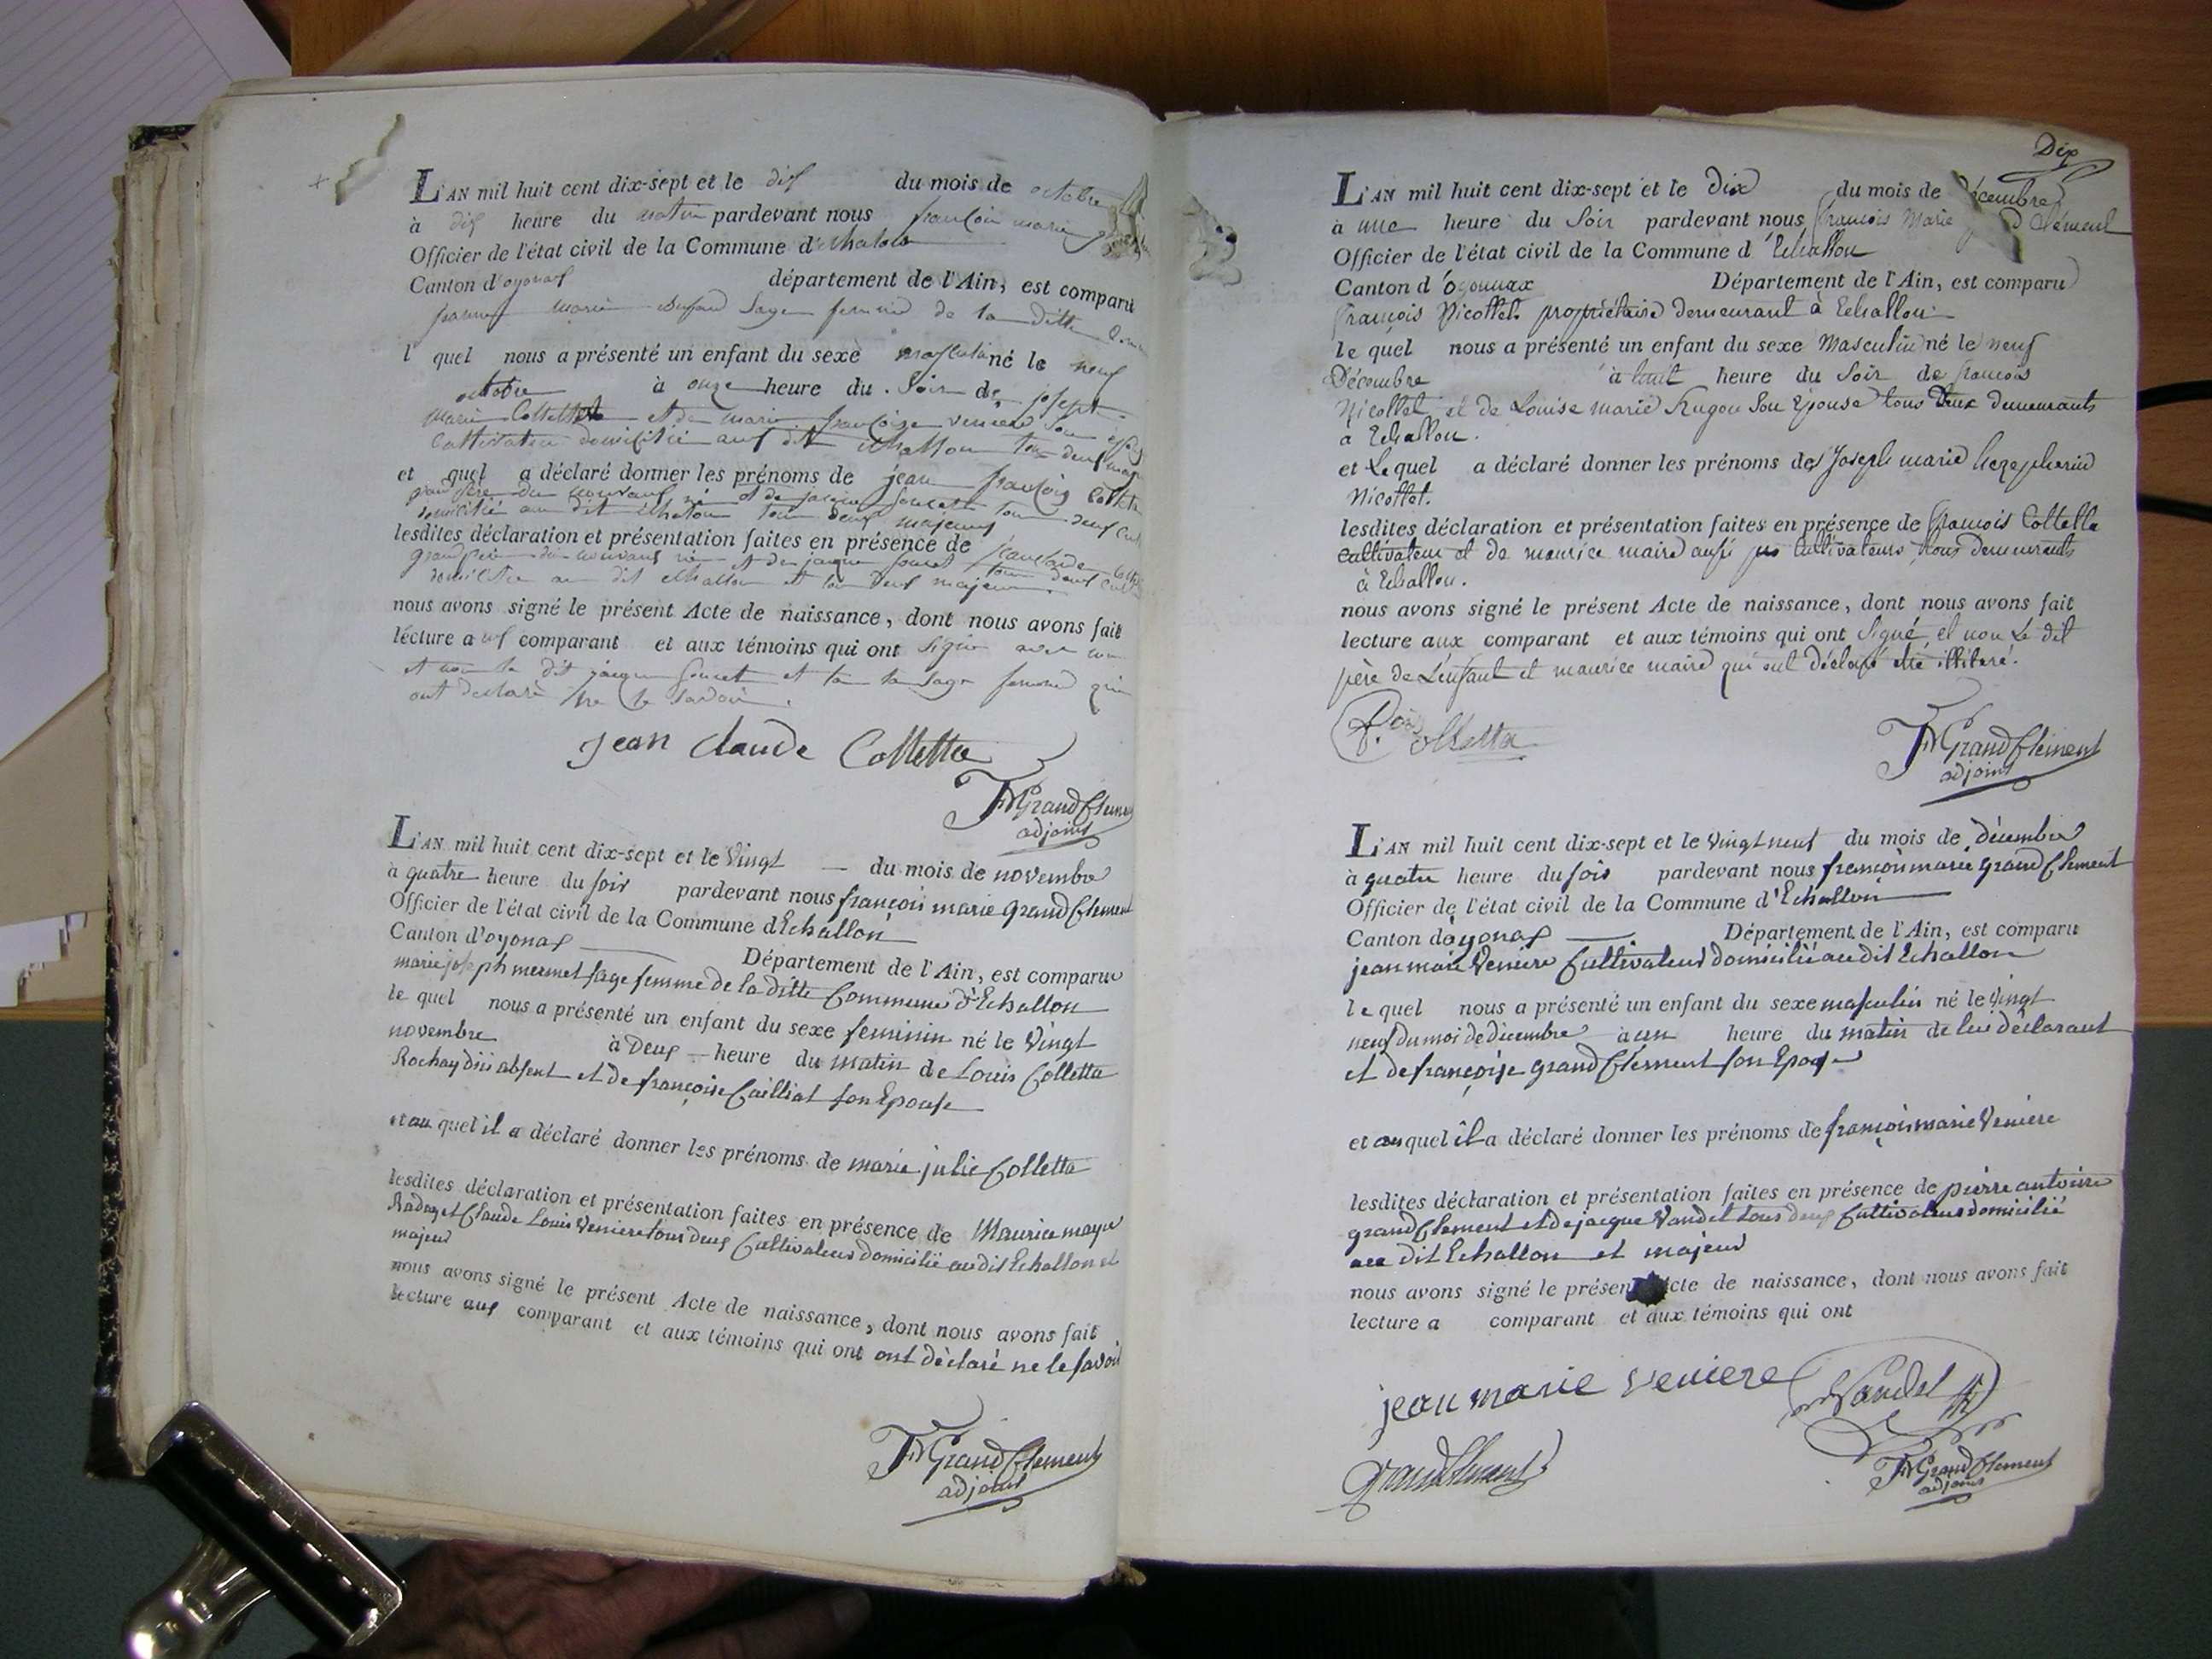 L'AN mil huit cent dix-sept et le dix du mois de octobre
à dix heure du matin pardevant nous françois marie
Officier de l'état civil de la Commune d'
Canton d'oyonax département de l'Ain, est comparu
marie sage femme de la ditte
l quel nous a présenté un enfant du sexe masculin né le neuf
octobre à onze heure du Soir de joseph
marie Colletta et de marie françoise veniere son
Cultivateur domicilié au dit Echallon tous deux
et quel a déclaré donner les prénoms de jean françois
grand père du nouveau né et de jacque tous deux
domicilié au dit tous deux majeurs
lesdites déclaration et présentation faites en présence de jean claude
grand père du nouveau né et de jacque tous deux
domicilié au dit Echallon et tous deux majeurs
nous avons signé le présent Acte de naissance, dont nous avons fait
lecture aux comparant et aux témoins qui ont signé avec nous
et non le dit jacque et la sage femme qui
ont déclaré ne le savoir.
jean claude Colletta
FM GrandClement
adjoint
L'AN mil huit cent dix-sept et le vingt du mois de novembre
à quatre heure du soir pardevant nous françois marie grandClement
Officier de l'état civil de la Commune d'Echallon
Canton d'oyonax Département de l'Ain, est comparu
marie joseph mermet sage femme de la ditte Commune d'Echallon
le quel nous a présenté un enfant du sexe feminin né le vingt
novembre à Deux heure du matin de Louis Colletta
absent et de françoise Cailliat son Epouse
et au quel il a déclaré donner les prénoms de marie julie Colletta
lesdites déclaration et présentation faites en présence de Maurice
et Claude Louis Veniere tous deux Cultivateur domicilié au dit Echallon et
majeur
nous avons signé le présent Acte de naissance, dont nous avons fait
lecture aux comparant et aux témoins qui ont ont déclaré ne le savoir
FM GrandClement
adjoint
Dix
L'AN mil huit cent dix-sept et le Dix du mois de Décembre
à une heure du Soir pardevant nous françois Marie Clément
Officier de l'état civil de la Commune d'Echallon
Canton d'oyonnax Département de l'Ain, est comparu
françois Nicollet propriétaire demeurant à Echallon
le quel nous a présenté un enfant du sexe Masculin né le neuf
Décembre à huit heure du Soir de françois
Nicollet et de Louise marie Hugon son Epouse tous deux demeurants
à Echallon.
et Lequel a déclaré donner les prénoms de Joseph marie
Nicollet.
lesdites déclaration et présentation faites en présence de françois Colletta
Cultivateur et de maurice maire aussi Cultivateurs tous demeurants
à Echallon.
nous avons signé le présent Acte de naissance, dont nous avons fait
lecture aux comparant et aux témoins qui ont signé, et non Le dit
père de L'enfant et maurice maire qui ont déclaré être illiteré.
f.ois Colletta
FM GrandClement
adjoint
L'AN mil huit cent dix-sept et le vingt neuf du mois de décembre
à quatre heure du soir pardevant nous françois marie grandClement
Officier de l'état civil de la Commune d'Echallon
Canton doyonax Département de l'Ain, est comparu
jean marie Veniere Cultivateur domicilié au dit Echallon
le quel nous a présenté un enfant du sexe masculin né le vingt
neuf du moi de décembre à un heure du matin de lui déclarant
et de françoise grandClement son Epouse
et au quel il a déclaré donner les prénoms de françois marie Veniere
lesdites déclaration et présentation faites en présence de pierre antoine
grandClement et de jacque Vandel tous deux Cultivateur domicilié
au dit Echallon et majeur
nous avons signé le présent Acte de naissance, dont nous avons fait
lecture a comparant et aux témoins qui ont
jean marie veniere Vandel
grandClement
FM GrandClement
adjoint